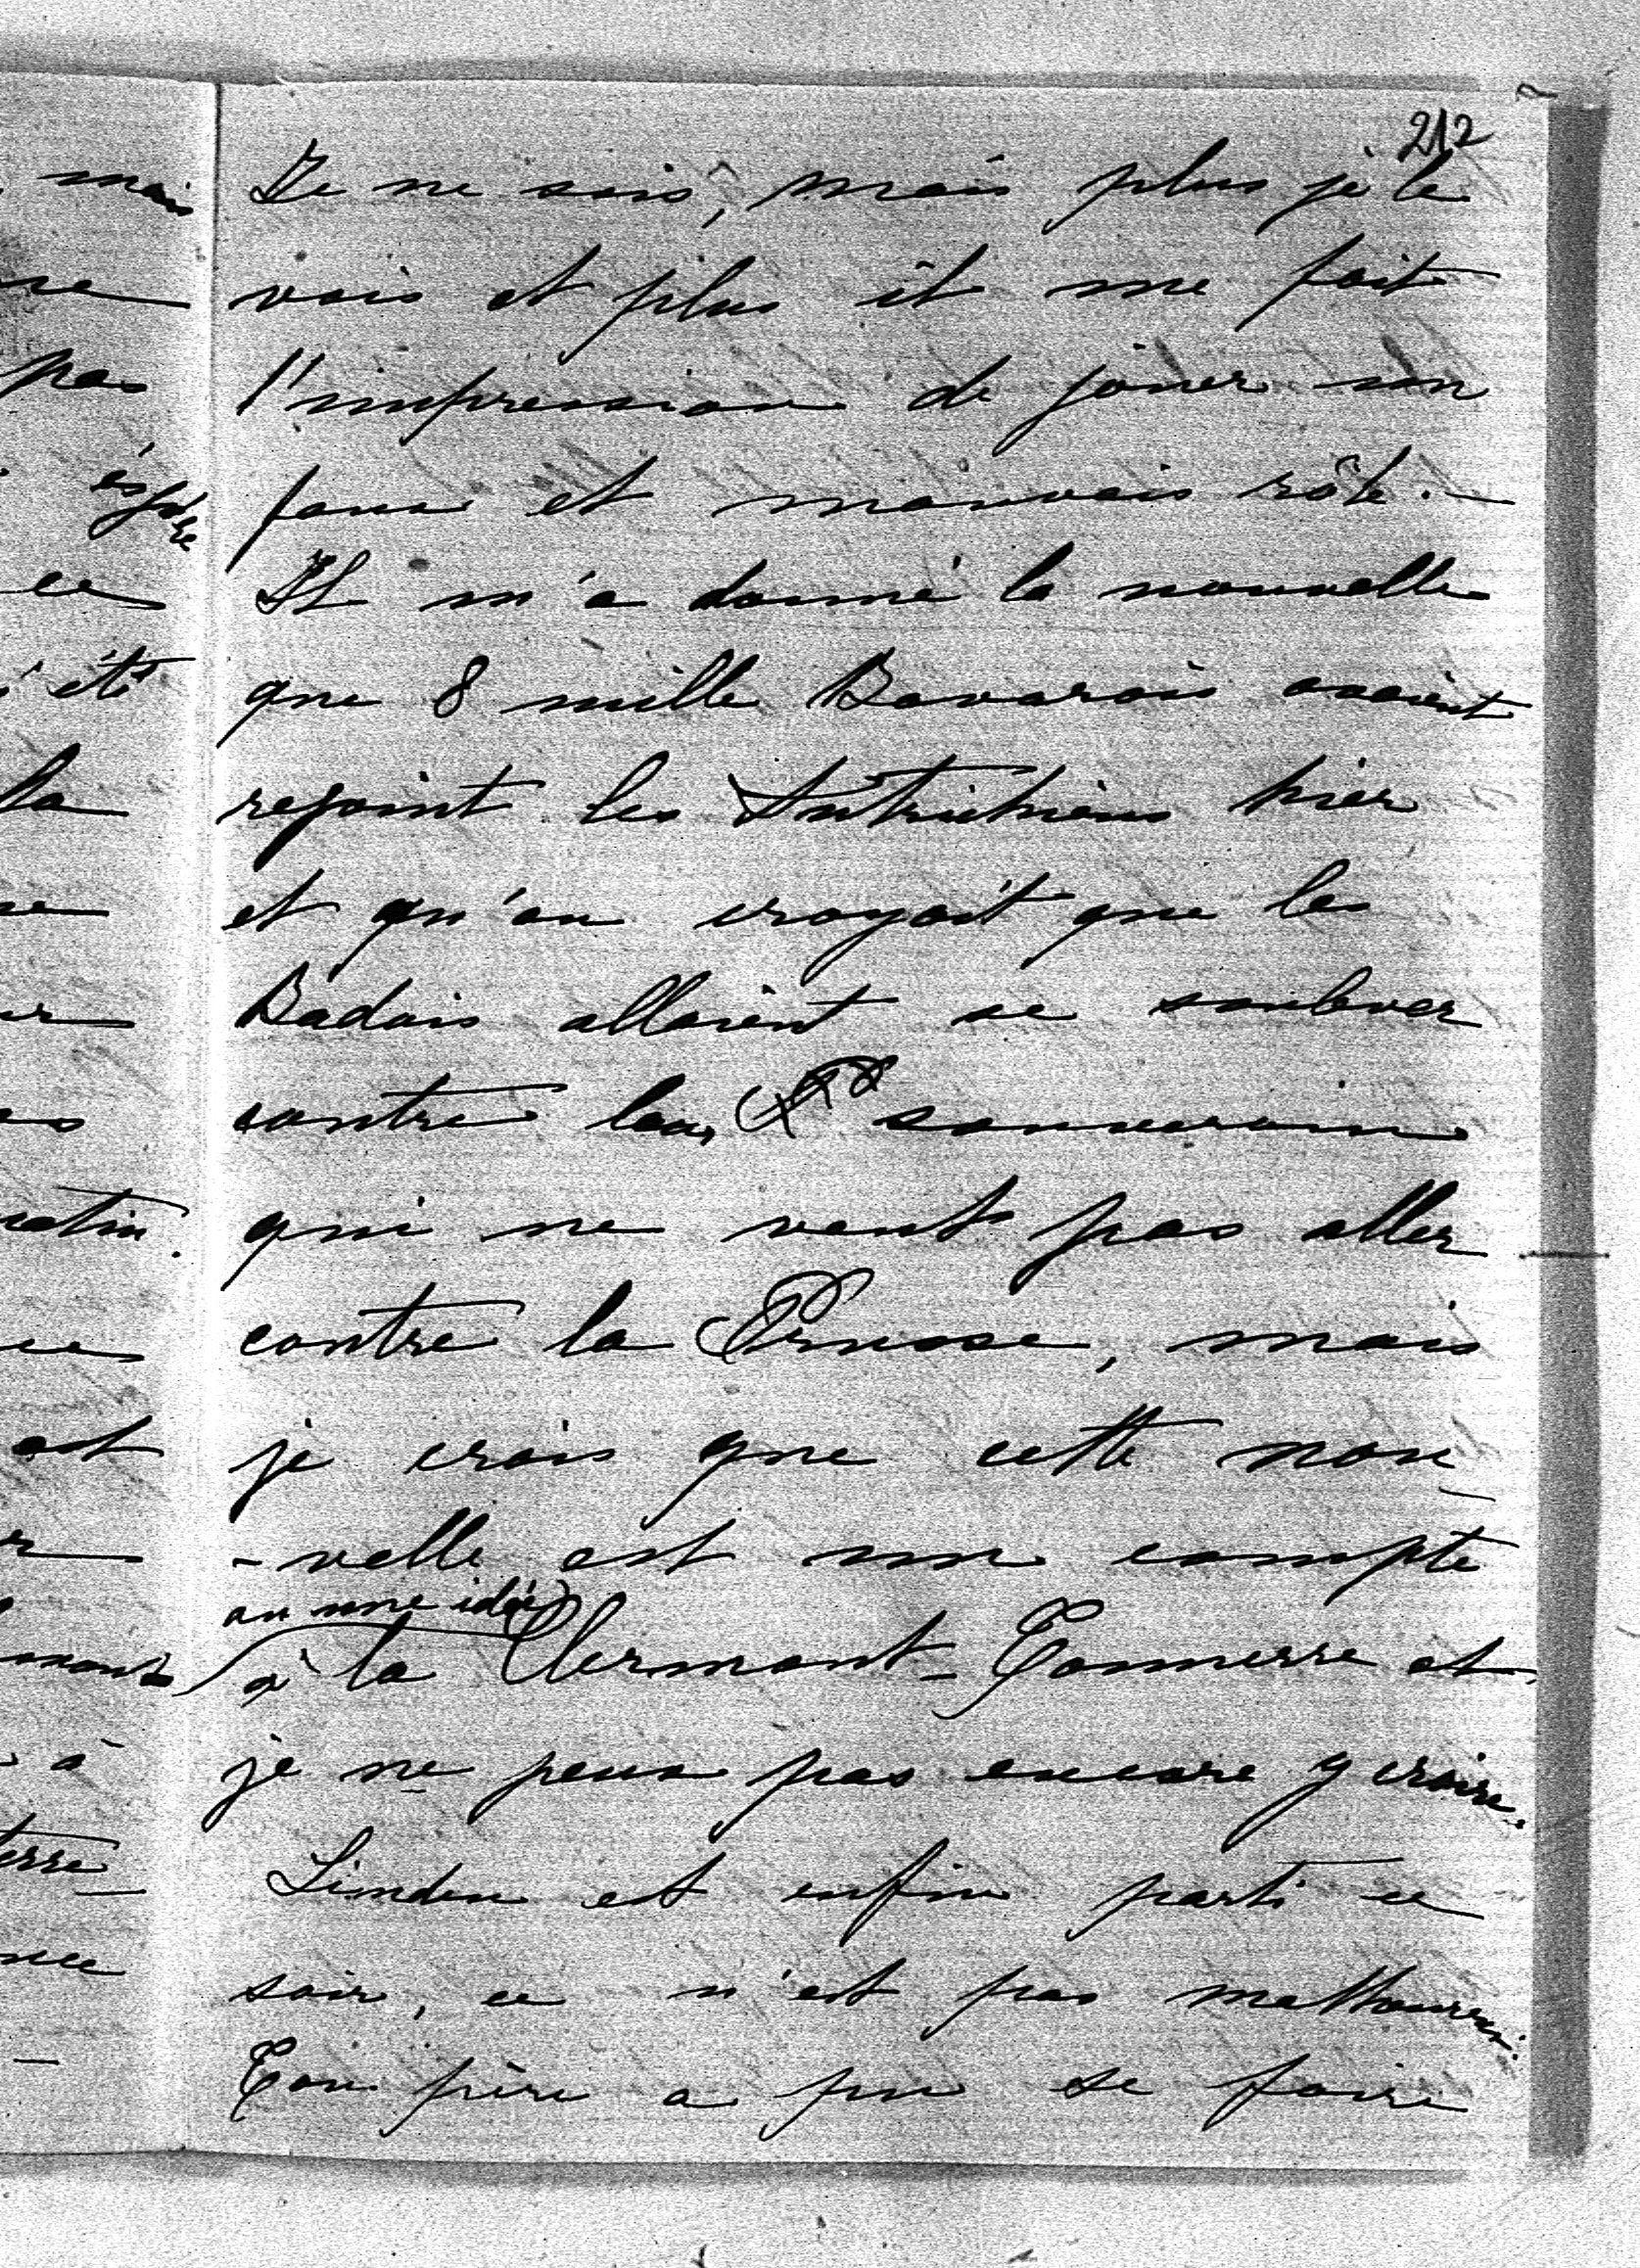 212
Je ne sais, mais plus je le
vois et plus il me fait
l'impression de jouer un
faux et mauvais rôle. —
Il m'a donné la nouvelle
que 8 mille Bavarois avaient
rejoint les Autrichiens hier
et qu'on croyait que les
Badois allaient se soulever
contre leur souverain
qui ne veut pas aller
contre la Prusse, mais
je crois que cette nou-
-velle est un compte
ou une idée
à la Clermont-Tonnerre et
je ne peux pas encore y croire.
Linden est enfin parti ce
soir, ce n'est pas malheureux.
Ton père a pu se faire
mais
pas
ce
été
la
est
à